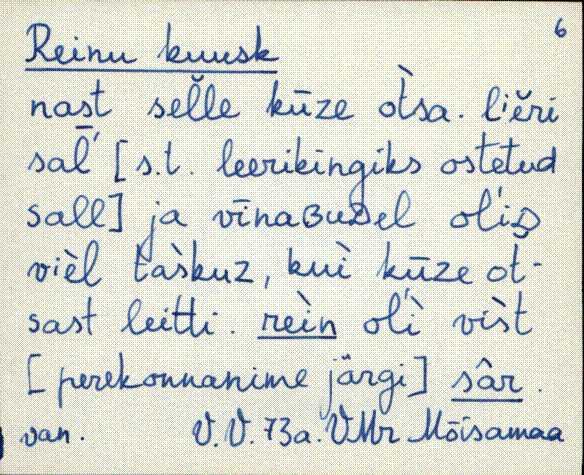 6
Reinu kuusk
nast seľľe kūze òtsa. l'iěri
sal̄' [s.t. leerikingiks ostetud
sall] ja vīnaʙuᴅel ol'iᴅ
vièl tàskuz, kuì kūze ot-
sast leitti. reìn ol'ì vìst
[perekonnanime järgi] sâr.
van. V.V. 73a. VMr Mõisamaa